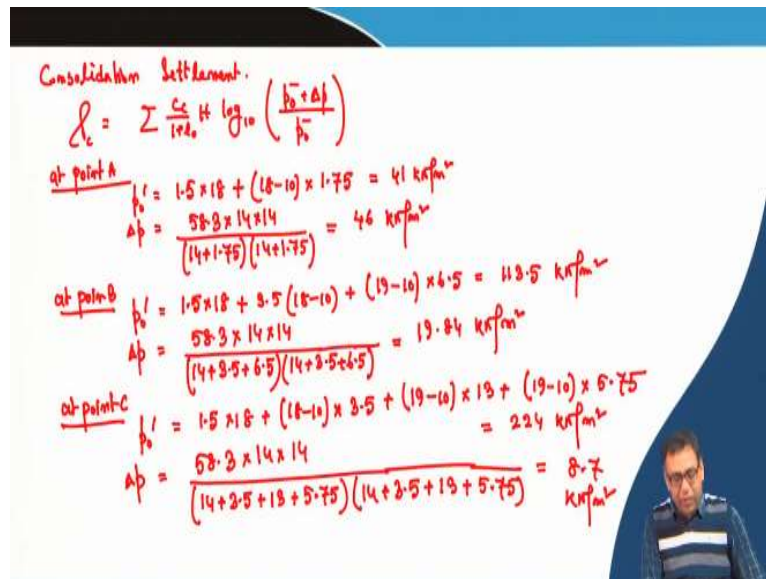 Consolidation Settlement.
ρc = Σ Cc/(1+e0) H log10 ((p̄0 + Δp)/p̄0)
at point A
p0' = 1.5×18 + (18-10) × 1.75 = 41 kN/m²
Δp = (58.3 × 14 × 14)/((14+1.75)(14+1.75)) = 46 kN/m²
at point B
p0' = 1.5×18 + 3.5(18-10) + (19-10) × 6.5 = 113.5 kN/m²
Δp = (58.3 × 14 × 14)/((14+3.5+6.5)(14+3.5+6.5)) = 19.84 kN/m²
at point C
p0' = 1.5×18 + (18-10) × 3.5 + (19-10) × 13 + (19-10) × 5.75
= 224 kN/m²
Δp = (58.3 × 14 × 14)/((14+3.5+13+5.75)(14+3.5+13+5.75)) = 8.7
kN/m²